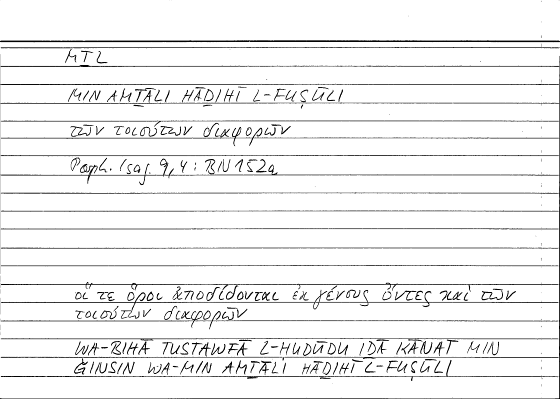 MṮL
MIN AMṮĀLI HĀḎIHĪ L-FUṢŪLI
τῶν τοιούτων διαφορῶν
Porph. Isag. 9,4 : BN 152a
οἵ τε ὅροι ἀποδίδονται ἐκ γένους ὄντες καὶ τῶν
τοιούτων διαφορῶν
WA-BIHĀ TUSTAWFĀ L-ḤUDŪDU IḎĀ KĀNAT MIN
ǦINSIN WA-MIN AMṮĀLI HĀḎIHĪ L-FUṢŪLI